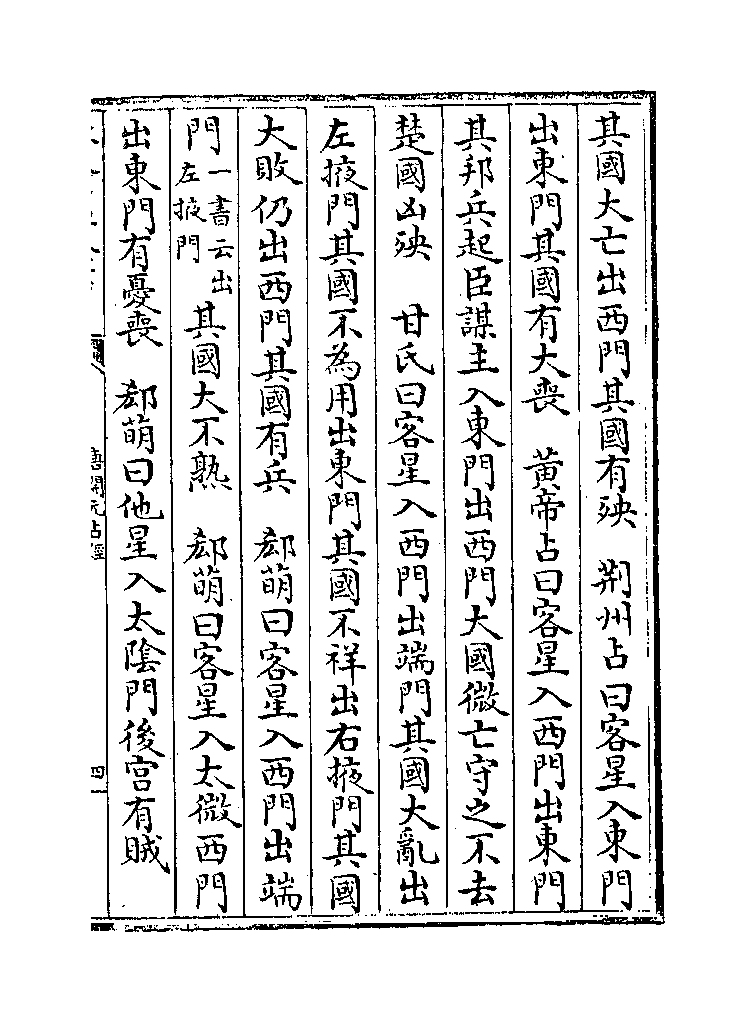 其國大亡出西門其國有殃　荆州占曰客星入東門
出東門其國有大喪　黄帝占曰客星入西門出東門
其邦兵起臣謀主入東門出西門大國微亡守之不去
楚國凶殃　甘氏曰客星入西門出端門其國大亂出
左掖門其國不為用出東門其國不祥出右掖門其國
大敗仍出西門其國有兵　郄萌曰客星入西門出端
門一書云出左掖門其國大不熟　郄萌曰客星入太微西門
出東門有憂喪　郄萌曰他星入太陰門後宫有賊
唐開元占經
四